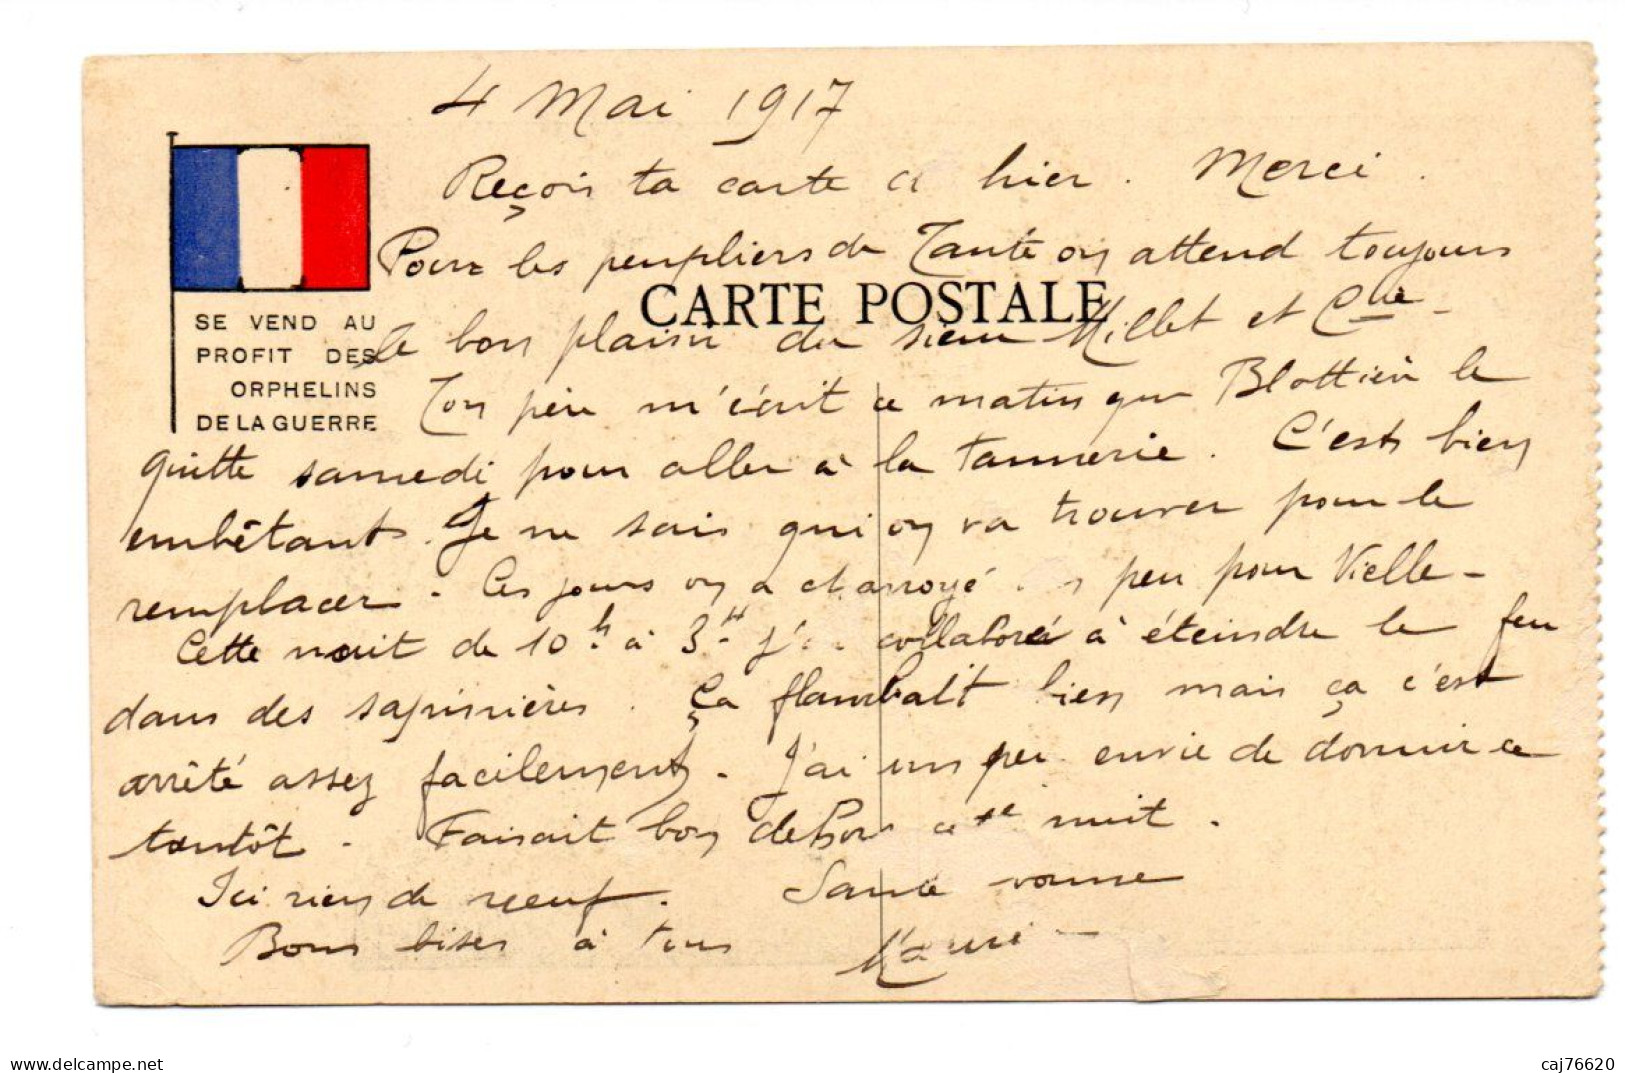 4 Mai 1917
Reçois ta carte d' hier. Merci.
Pour les peupliers de Tante on attend toujours
CARTE POSTALE
le bon plaisir du sieur Millet et Cie -
SE VEND AU
PROFIT DES
ORPHELINS
DE LA GUERRE
Ton père m'écrit ce matin que Blottière le
quitte samedi pour aller à la tannerie. C'est bien
embêtant. Je ne sais qui on va trouver pour le
remplacer. Ces jours on a charroyé un peu pour Vielle-
Cette nuit de 10h à 3h j'ai collaboré à éteindre le feu
dans des sapinières. Ça flambait bien mais ça c'est
arrêté assez facilement. J'ai un peu envie de dormir ce
tantôt. Faisait bon dehors cette nuit.
Ici rien de neuf. Santé
Bons bises à tous
caj76620
Delcampe.net